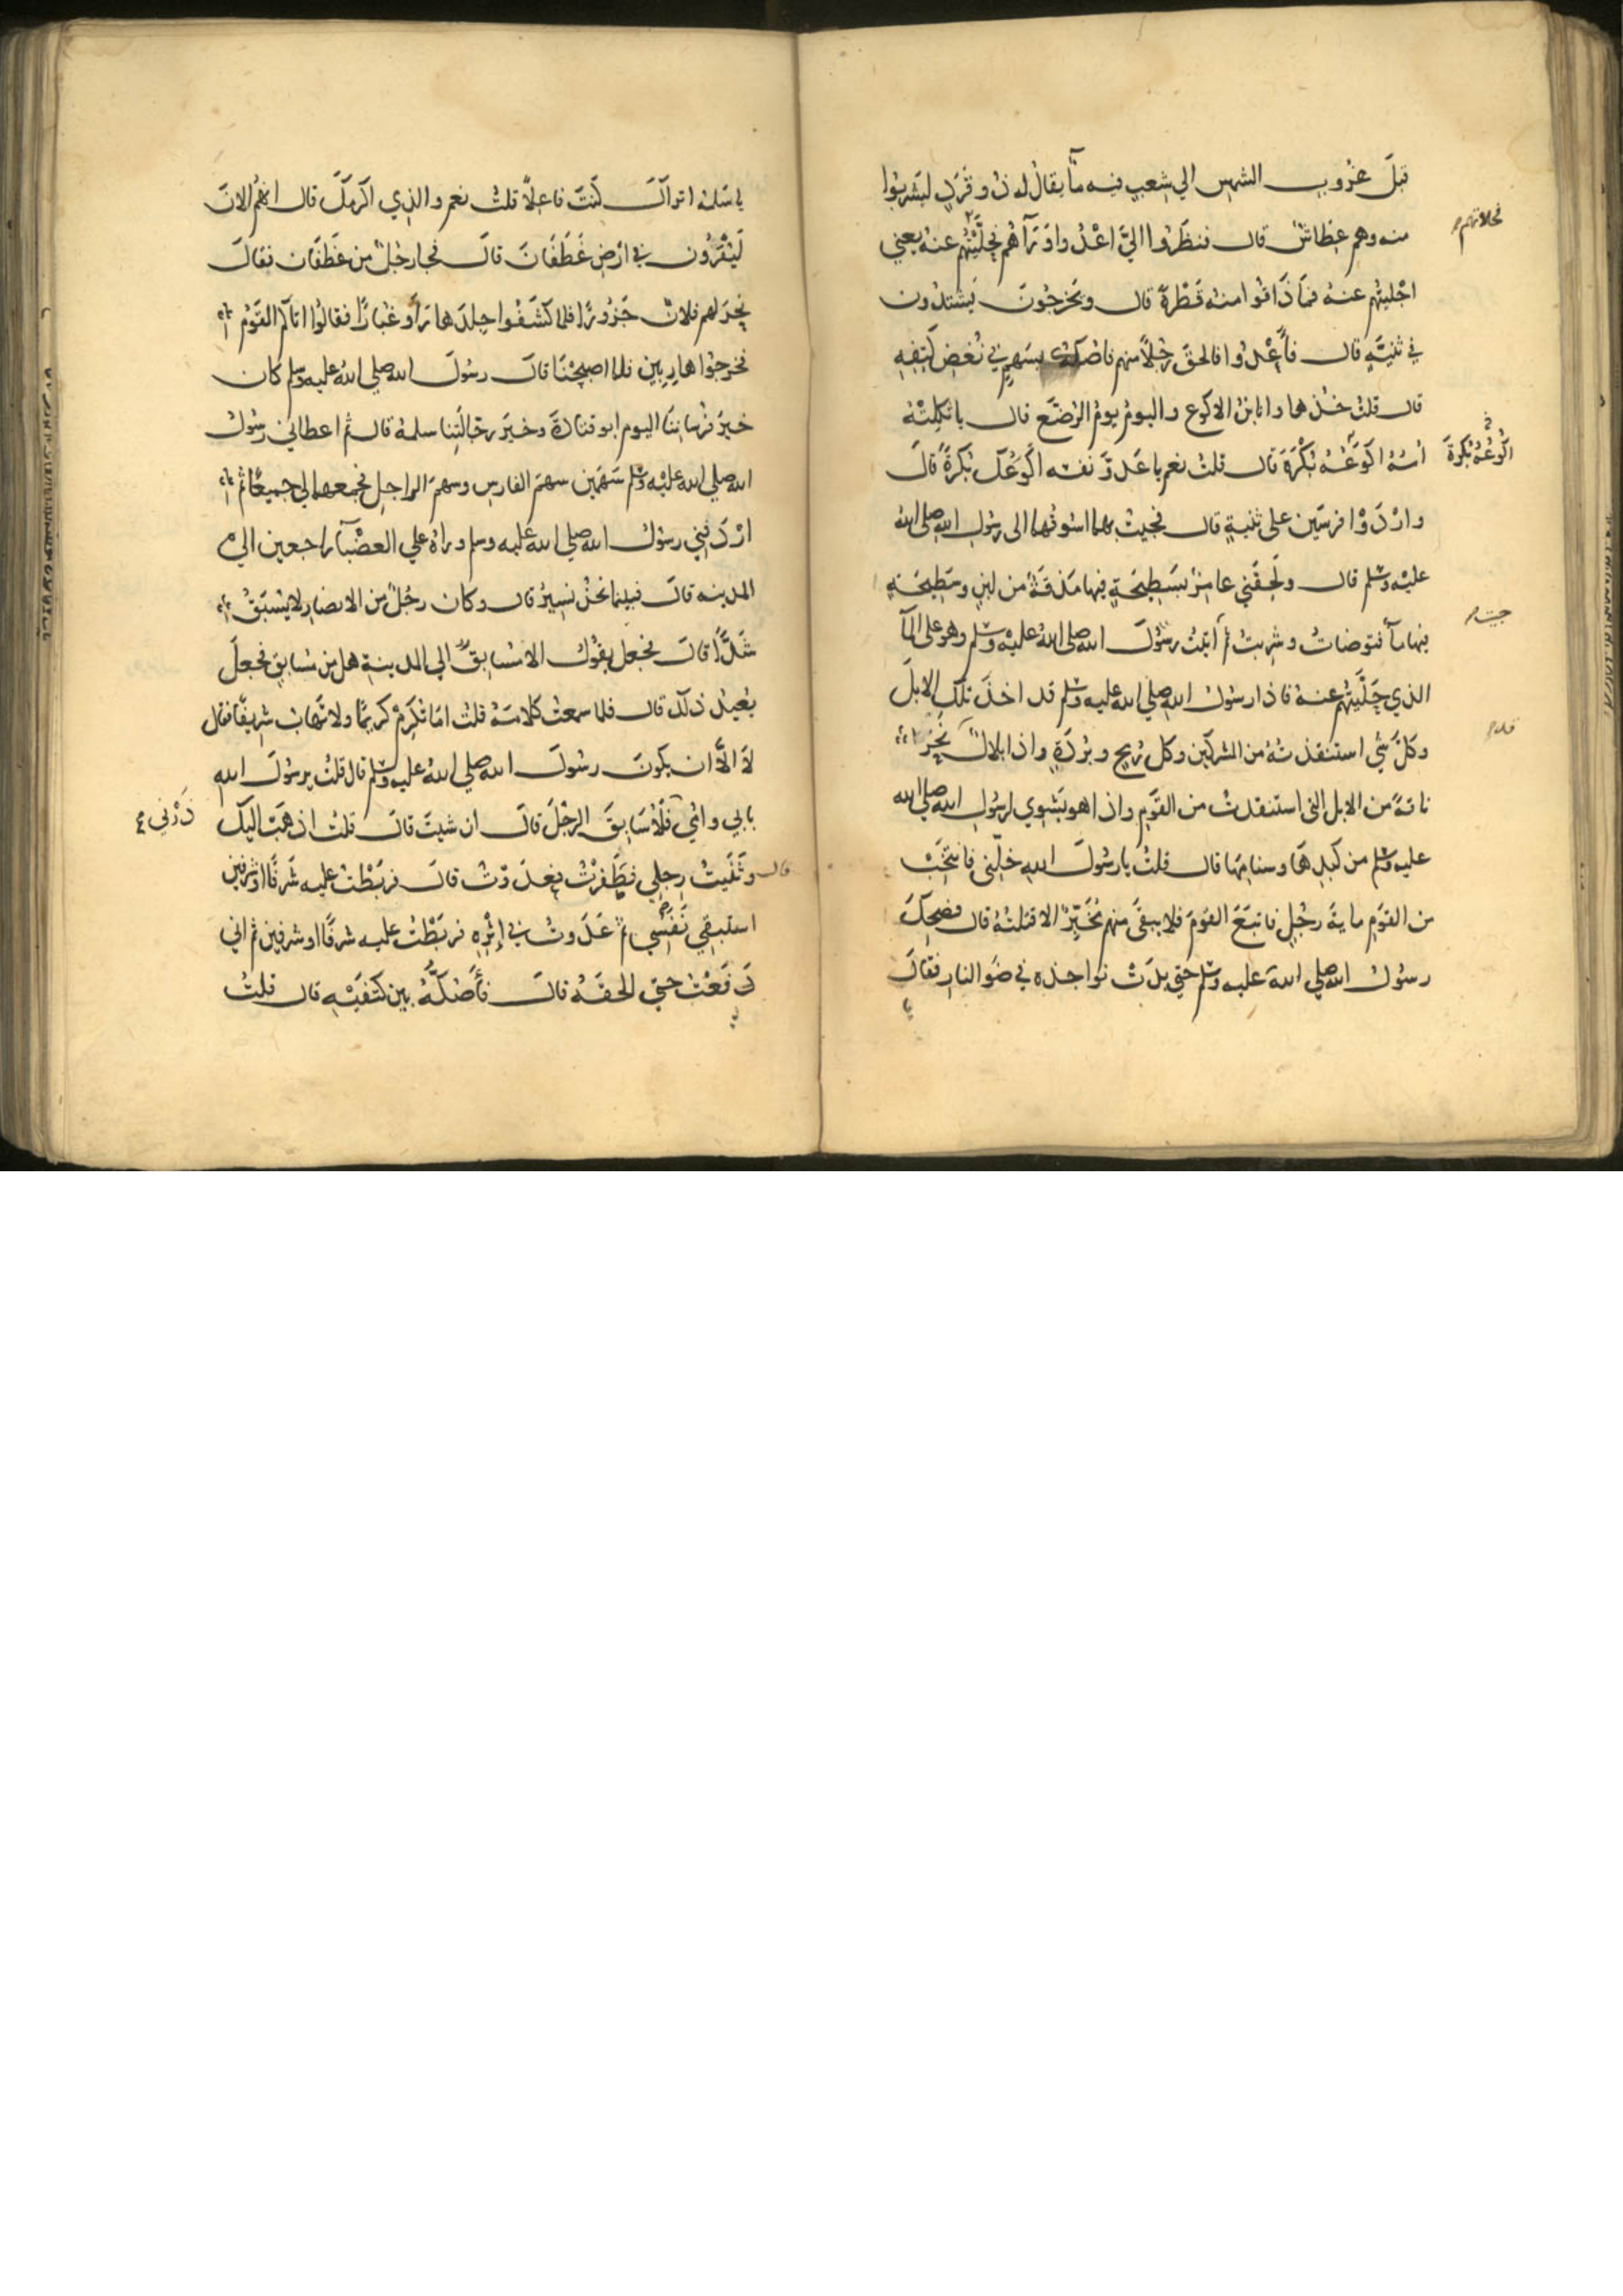 قبلَ غُروبِ الشمسِ الي شِعبٍ فيه مآءٌ يقالُ له ذو قَرَدٍ ليَشربُوا
منه وهم عِطاشٌ قال فنظَرُوا اليَّ اعْدُوا وَرَآهُم فحلَّيْتُهُم عنهُ يعني
فحلاتهم
اجْليتُهم عنهُ فمَا ذَاقُوا منهُ قَطْرةً قال ويَخرجُونَ فيَشتدُون
في ثنيَّةٍ قال فأَعْدُوا فالحقَ رَجُلاً منهم فاصُكُّهُ بسَهمٍ في نُغضِ كَتِفِهِ
قال قلتُ خُذها وانا ابنُ الاكوعِ واليومُ يومُ الرُضَّعِ قال يا ثكِلتْهُ
اُمُّهُ اكوَعُهُ بُكْرَةَ قال قلتُ نعم يا عَدوَّ نفسه اَكْوَعُكَ بُكرَةَ قالَ
اَكْوَعُهُ بُكْرَةَ
وارْدَوْا فرسَين على ثنيةٍ قال فجيتُ بهما اسُوقُهما الى رسُولِ الله صلى الله
عليه وسلم قال ولَحِقَني عامِرٌ بسَطِيحَةٍ فيها مَذقَةٌ من لبنٍ وسَطِيحَةٍ
فيها مآء فتوضاتُ وشربتُ ثم اَتيتُ رسُولَ الله صلى اللهُ عليه وسلم وهو على المآ
الذي حَلَّيتُهم عنهُ فاذا رسُولُ الله صلي الله عليه وسلم قد اخذَ تلكَ الابلَ
وكلَّ شيٍ استنقذتُهُ من المشركين وكل رُمحٍ وبُردَةٍ واذا بلالٌ نَحَرَ
ناقةً من الابل التى استنقذتُ من القَومِ واذا هو يَشوِي لرسُولِ الله صلى الله
عليه وسلم من كَبدِهَا وسنامِهَا قال قلتُ يا رسُولَ الله خلِّني فانتَخِبُ
من القَومِ مايةَ رجُلٍ فاتبَعَ القومَ فلا يبقَى منهم مُخَبِّرٌ الا قتلتُهُ قال فضحِكَ
رسُولُ الله صلي اللهُ عليه وسلم حتي بدَتْ نواجذه في ضَوِ النارِ فقالَ
يا سَلمَهُ اتراكَ كُنتَ فاعِلاً قلتُ نعم والذي اكرمكَ قال انهُم الانَ
لَيُقْرَوْن في ارضِ غَطَفَانَ قالَ فجا رجُلٌ من غَطَفَان فقالَ
نَحَرَ لهم فلانٌ جَزُورًا فلما كشَفُوا جِلدَها رَأَوْ غُبارًا فقالُوا اتاكُم القَومُ
فخرجُوا هارِبين فلما اصبحْنَا قالَ رسُولُ الله صلي اللهُ عليه وسلم كان
خيرَ فُرسانِنَا اليوم ابو قتادَةَ وخيرَ رجَّالَتِنا سلمةُ قال ثم اعطاني رسُولُ
الله صلي الله عليه وسلم سَهمَين سهمَ الفارسِ وسهمَ الراجلِ فجمعهما لي جميعًا ثم
ارْدَفَني رسُولُ الله صلي الله عليه وسلم وراهُ علي العضْبآ راجعين الي
المدينه قالَ فبينما نحنُ نسيرُ قال وكان رجُلٌ من الانصار لا يُسْبَقُ
شَدًّا قالَ فجعل يقُولُ الا مُسابقٌ الي المدينةِ هل من مُسابقٍ فجعلَ
يُعيدُ ذلكَ قال فلما سمعتُ كلامَهُ قلتُ اما تُكرِمُ كريمًا ولا تَهابُ شريفًا فقال
لا الاَّ ان يكونَ رسُولَ الله صلي اللهُ عليه وسلم قال قلتُ يرسُولَ الله
بابي واُمي فلأُسَابِقَ الرجُلَ قالَ ان شيتَ قالَ قلتُ اذهَبُ اليكَ
ذَرْني
وثَنَيتُ رِجلِي فطَفَرْتُ فعدَوْتُ قالَ فربَطْتُ عليه شَرفًا او شرفين
قال
استبقي نَفَسِي ثم عَدَوتُ في اِثْرِهِ فربَطْتُ عليه شرفًا او شرفين ثم اني
رَفَعْتُ حتي الحقَهُ قالَ فأَصُكُّهُ بين كتفَيْهِ قال قلتُ